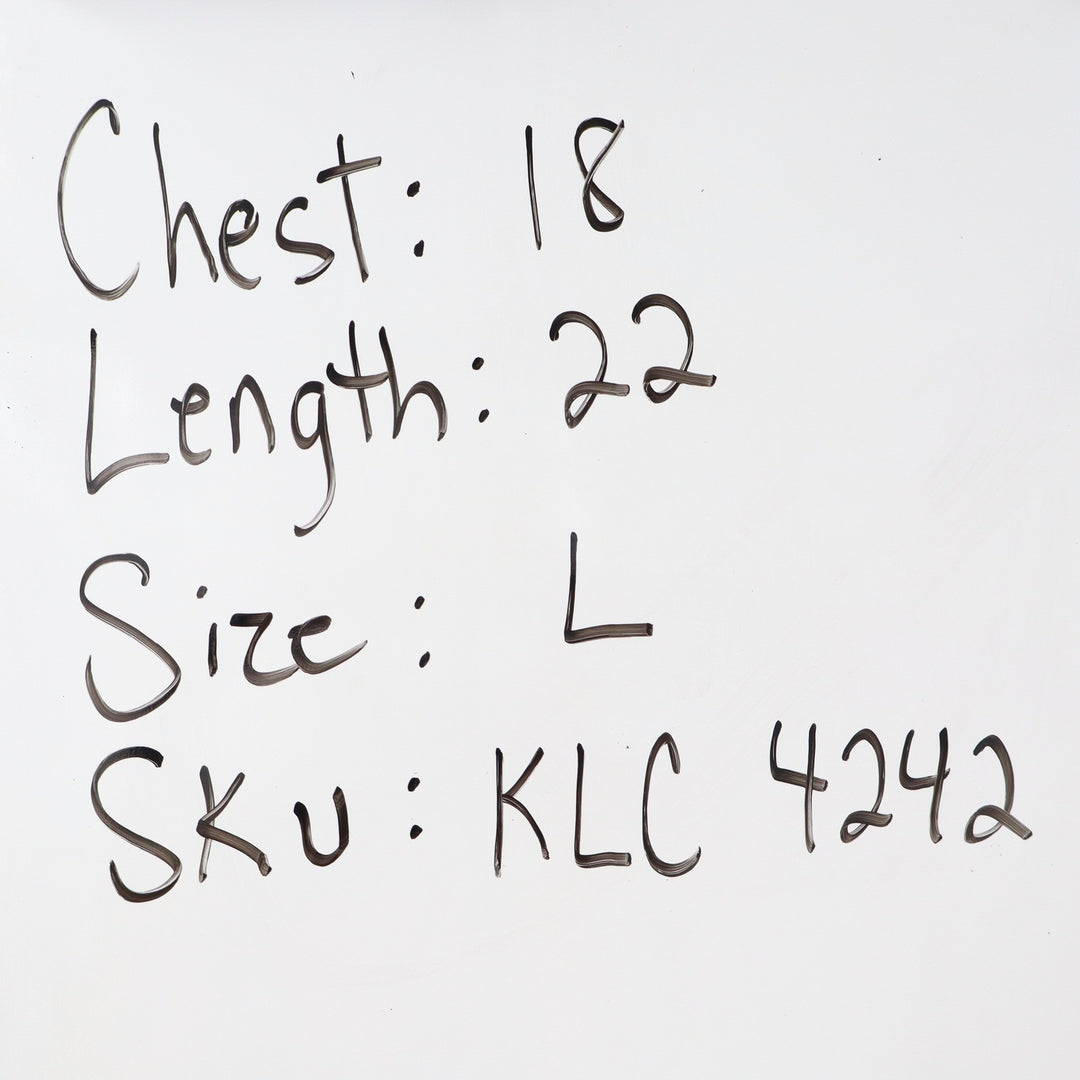 Chest: 18
Length: 22
Size: L
SKU: KLC 4242